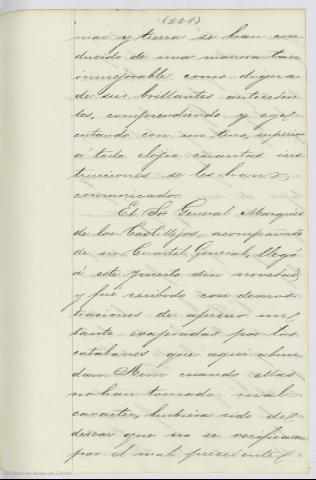 (221)
mar y tierra se han con
ducido de una manera tan
inmejorable como digna
de sus brillantes anteceden
tes, comprendiendo y eje
cutando con un tino, superior
á todo elogio cuantas ins
trucciones se les han
comunicado.
El Sor General Marqués
de los Castillejos, acompañado
de su Cuartel General, llegó
á este Puerto sin novedad
y fué recibido con demos
traciones de aprecio un
tanto exageradas por los
catalanes que aquí abun
dan. Aun cuando ellas
no han tomado mal
caracter, hubiera sido de
desear que no se verificasen
por el mal precedente